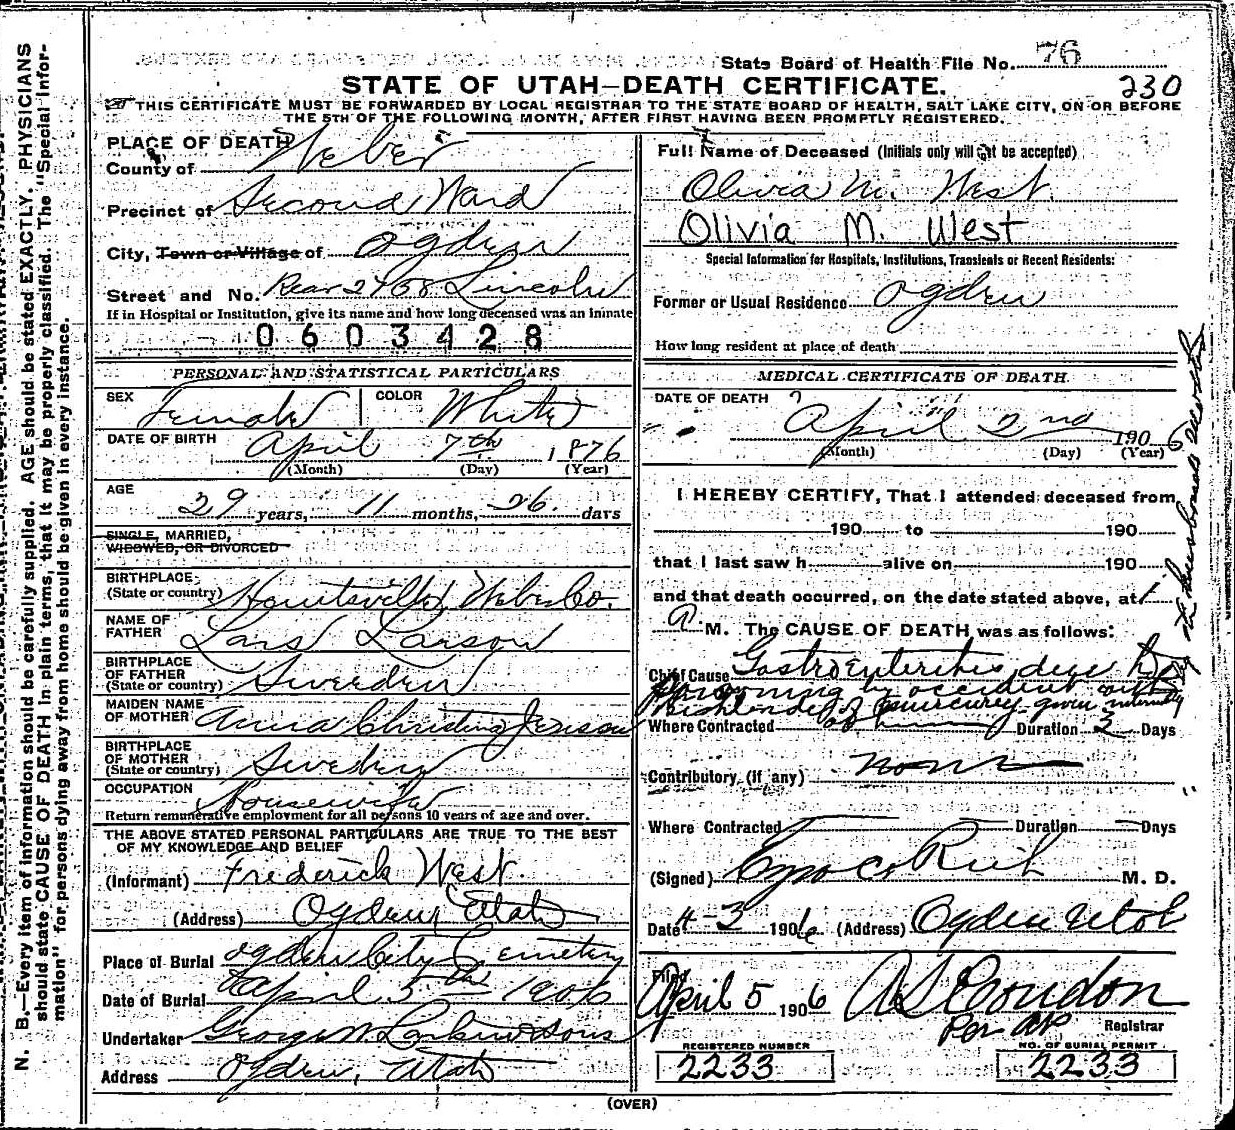 State Board of Health File No. 76
230
STATE OF UTAH—DEATH CERTIFICATE.
THIS CERTIFICATE MUST BE FORWARDED BY LOCAL REGISTRAR TO THE STATE BOARD OF HEALTH, SALT LAKE CITY, ON OR BEFORE
THE 5TH OF THE FOLLOWING MONTH, AFTER FIRST HAVING BEEN PROMPTLY REGISTERED.
N. B.—Every item of information should be carefully supplied. AGE should be stated EXACTLY. PHYSICIANS
should state CAUSE OF DEATH in plain terms, that it may be properly classified. The "Special Infor-
mation" for persons dying away from home should be given in every instance.
PLACE OF DEATH
County of Weber
Precinct of Second Ward
City, Town or Village of Ogden
Street and No. Rear 2468 Lincoln
If in Hospital or Institution, give its name and how long deceased was an inmate
0603428
PERSONAL AND STATISTICAL PARTICULARS
SEX Female COLOR White
DATE OF BIRTH April 7th, 1876
(Month) (Day) (Year)
AGE
29 years, 11 months, 26 days
SINGLE, MARRIED,
WIDOWED, OR DIVORCED
BIRTHPLACE
(State or country) Huntsville Weber Co.
NAME OF
FATHER Lars Larson
BIRTHPLACE
OF FATHER
(State or country) Sweeden
MAIDEN NAME
OF MOTHER Anna Christina Jenson
BIRTHPLACE
OF MOTHER
(State or country) Sweden
OCCUPATION Housewife
Return remunerative employment for all persons 10 years of age and over.
THE ABOVE STATED PERSONAL PARTICULARS ARE TRUE TO THE BEST
OF MY KNOWLEDGE AND BELIEF
(Informant) Frederick West
(Address) Ogden, Utah
Place of Burial Ogden City Cemetery
Date of Burial April 5th 1906
Undertaker George W Larkin & Sons
Address Ogden, Utah
Full Name of Deceased (Initials only will not be accepted)
Olivia M. West.
Olivia M. West
Special Information for Hospitals, Institutions, Transients or Recent Residents:
Former or Usual Residence Ogden
How long resident at place of death
MEDICAL CERTIFICATE OF DEATH
DATE OF DEATH
April 2nd 1906
(Month) (Day) (Year)
I HEREBY CERTIFY, That I attended deceased from
190 to 190
that I last saw h alive on 190
and that death occurred, on the date stated above, at 1
A. M. The CAUSE OF DEATH was as follows:
Chief Cause Gastroenteritis due to
poisoning by accident with
Bichloride of mercurey given internally
by the husbands
Where Contracted Duration 3 Days
Contributory (if any) none
Where Contracted Duration Days
(Signed) Ezra C Rich M. D.
Date 4-3 1906 (Address) Ogden Utah
Filed
April 5 1906 A S Condon
Per AP Registrar
REGISTERED NUMBER
2233
NO. OF BURIAL PERMIT
2233
(OVER)